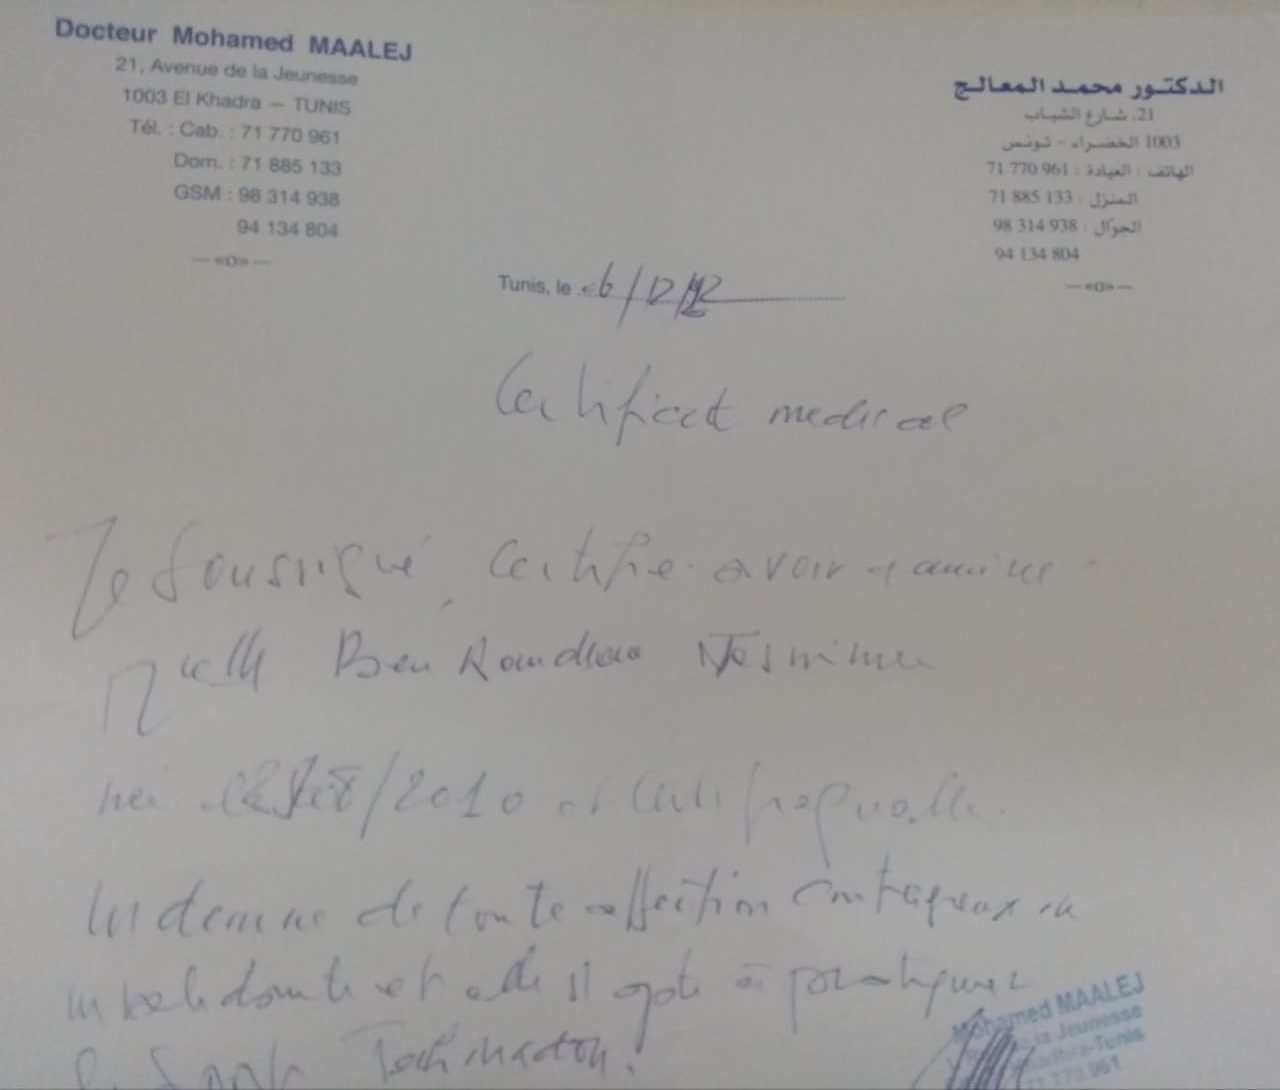 Docteur Mohamed MAALEJ
21, Avenue de la Jeunesse
1003 El Khadra – TUNIS
Tél. : Cab. : 71 770 961
Dom. : 71 885 133
GSM : 98 314 938
94 134 804
—«O»—
الدكتور محمد المعالج
21، شارع الشباب
1003 الخضراء - تونس
الهاتف : العيادة : 71 770 961
المنزل : 71 885 133
الجوّال : 98 314 938
94 134 804
—«O»—
Tunis, le 6/12/
Certificat medical
Je soussigné, certifie avoir examiné
Melle Ben Romdhane
/2010 et certifie qu'elle
indemne de toute affection contagieux
et elle apte à pratiquer
le
Mohamed MAALEJ
la Jeunesse
-Tunis
71 770 961